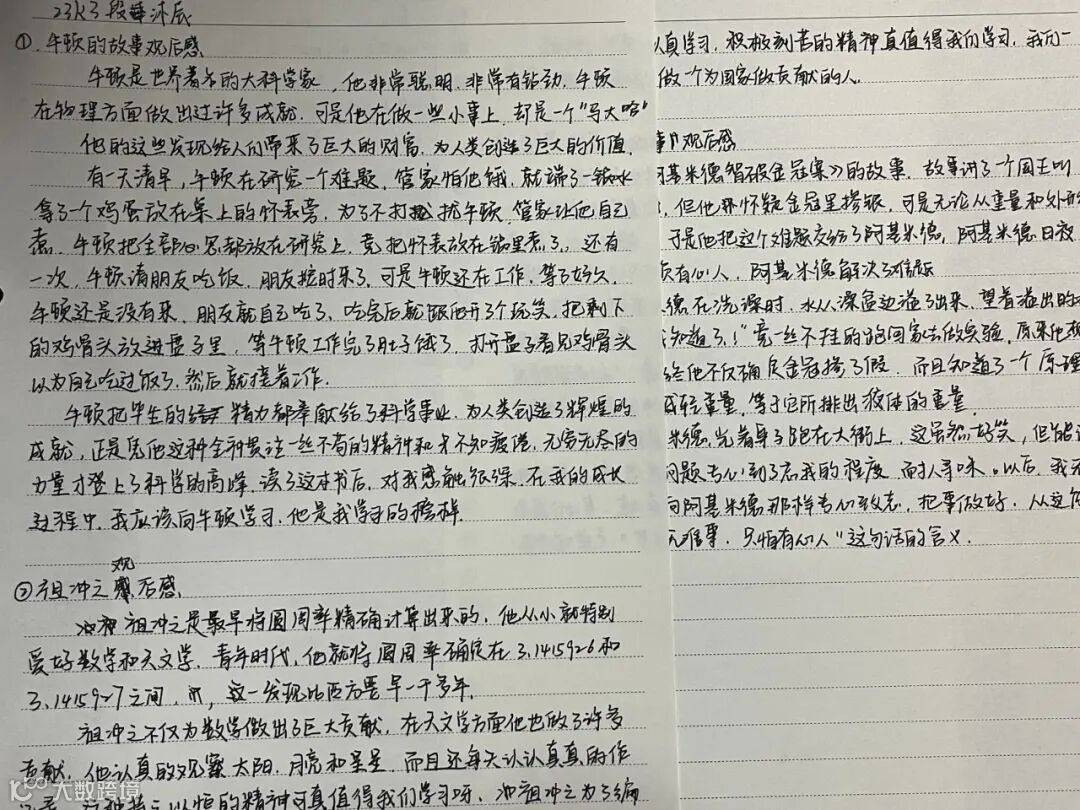 23K3段沐辰
①.牛顿的故事观后感
牛顿是世界著名的大科学家,他非常聪明.非常有钻劲.牛顿
在物理方面做出过许多成就.可是他在做一些小事上,却是一个"马大哈"
他的这些发现给人们带来了巨大的财富.为人类创造了巨大的价值.
有一天清早,牛顿在研究一个难题.管家怕他饿.就端了一锅水
拿了一个鸡蛋放在桌上的怀表旁,为了不打扰牛顿.管家让他自己
煮.牛顿把全部心思都放在研究上,竟把怀表放在锅里煮了,还有
一次,牛顿请朋友吃饭.朋友按时来了,可是牛顿还在工作,等了好久
牛顿还是没有来.朋友就自己吃了,吃完后就跟他开了个玩笑,把剩下
的鸡骨头放进盘子里,等牛顿工作完了肚子饿了,打开盘子看见鸡骨头
以为自己吃过饭了,然后就接着工作.
牛顿把毕生的精力都奉献给了科学事业.为人类创造了辉煌的
成就,正是凭他这种全神贯注一丝不苟的精神和才不知疲倦,无穷无尽的
力量才登上了科学的高峰.读了这本书后,对我感触很深.在我的成长
过程中,我应该向牛顿学习.他是我学习的榜样.
②祖冲之观后感
祖冲之是最早将圆周率精确计算出来的,他从小就特别
爱好数学和天文学.青年时代,他就将圆周率确定在3.1415926和
3.1415927之间,这一发现比西方要早一千多年.
祖冲之不仅为数学做出了巨大贡献,在天文学方面他也做了许多
贡献.他认真的观察太阳.月亮和星星.而且还每天认认真真的作
以恒的精神可真值得我们学习呀.祖冲之为了编
真学习,积极刻苦的精神真值得我们学习,我们一
做一个为国家做贡献的人.
观后感
基米德智破金冠案》的故事.故事讲了一个国王叫
,但他那怀疑金冠里掺银.可是无论从重量和外形
可是他把这个难题交给了阿基米德,阿基米德日夜
负有心人,阿基米德解决了难题
德在洗澡时.水从澡盆边溢了出来.望着溢出的
知道了!"竟一丝不挂的跑回家去做实验,原来他
终他不仅确定金冠掺了假.而且知道了一个原理
减轻重量,等于它所排出液体的重量
米德光着身子跑在大街上,这虽然好笑,但能
问题专心到了忘我的程度,耐人寻味.以后,我
向阿基米德那样专心致志,把事做好.从这
无难事,只怕有心人"这句话的含义.
大数跨境